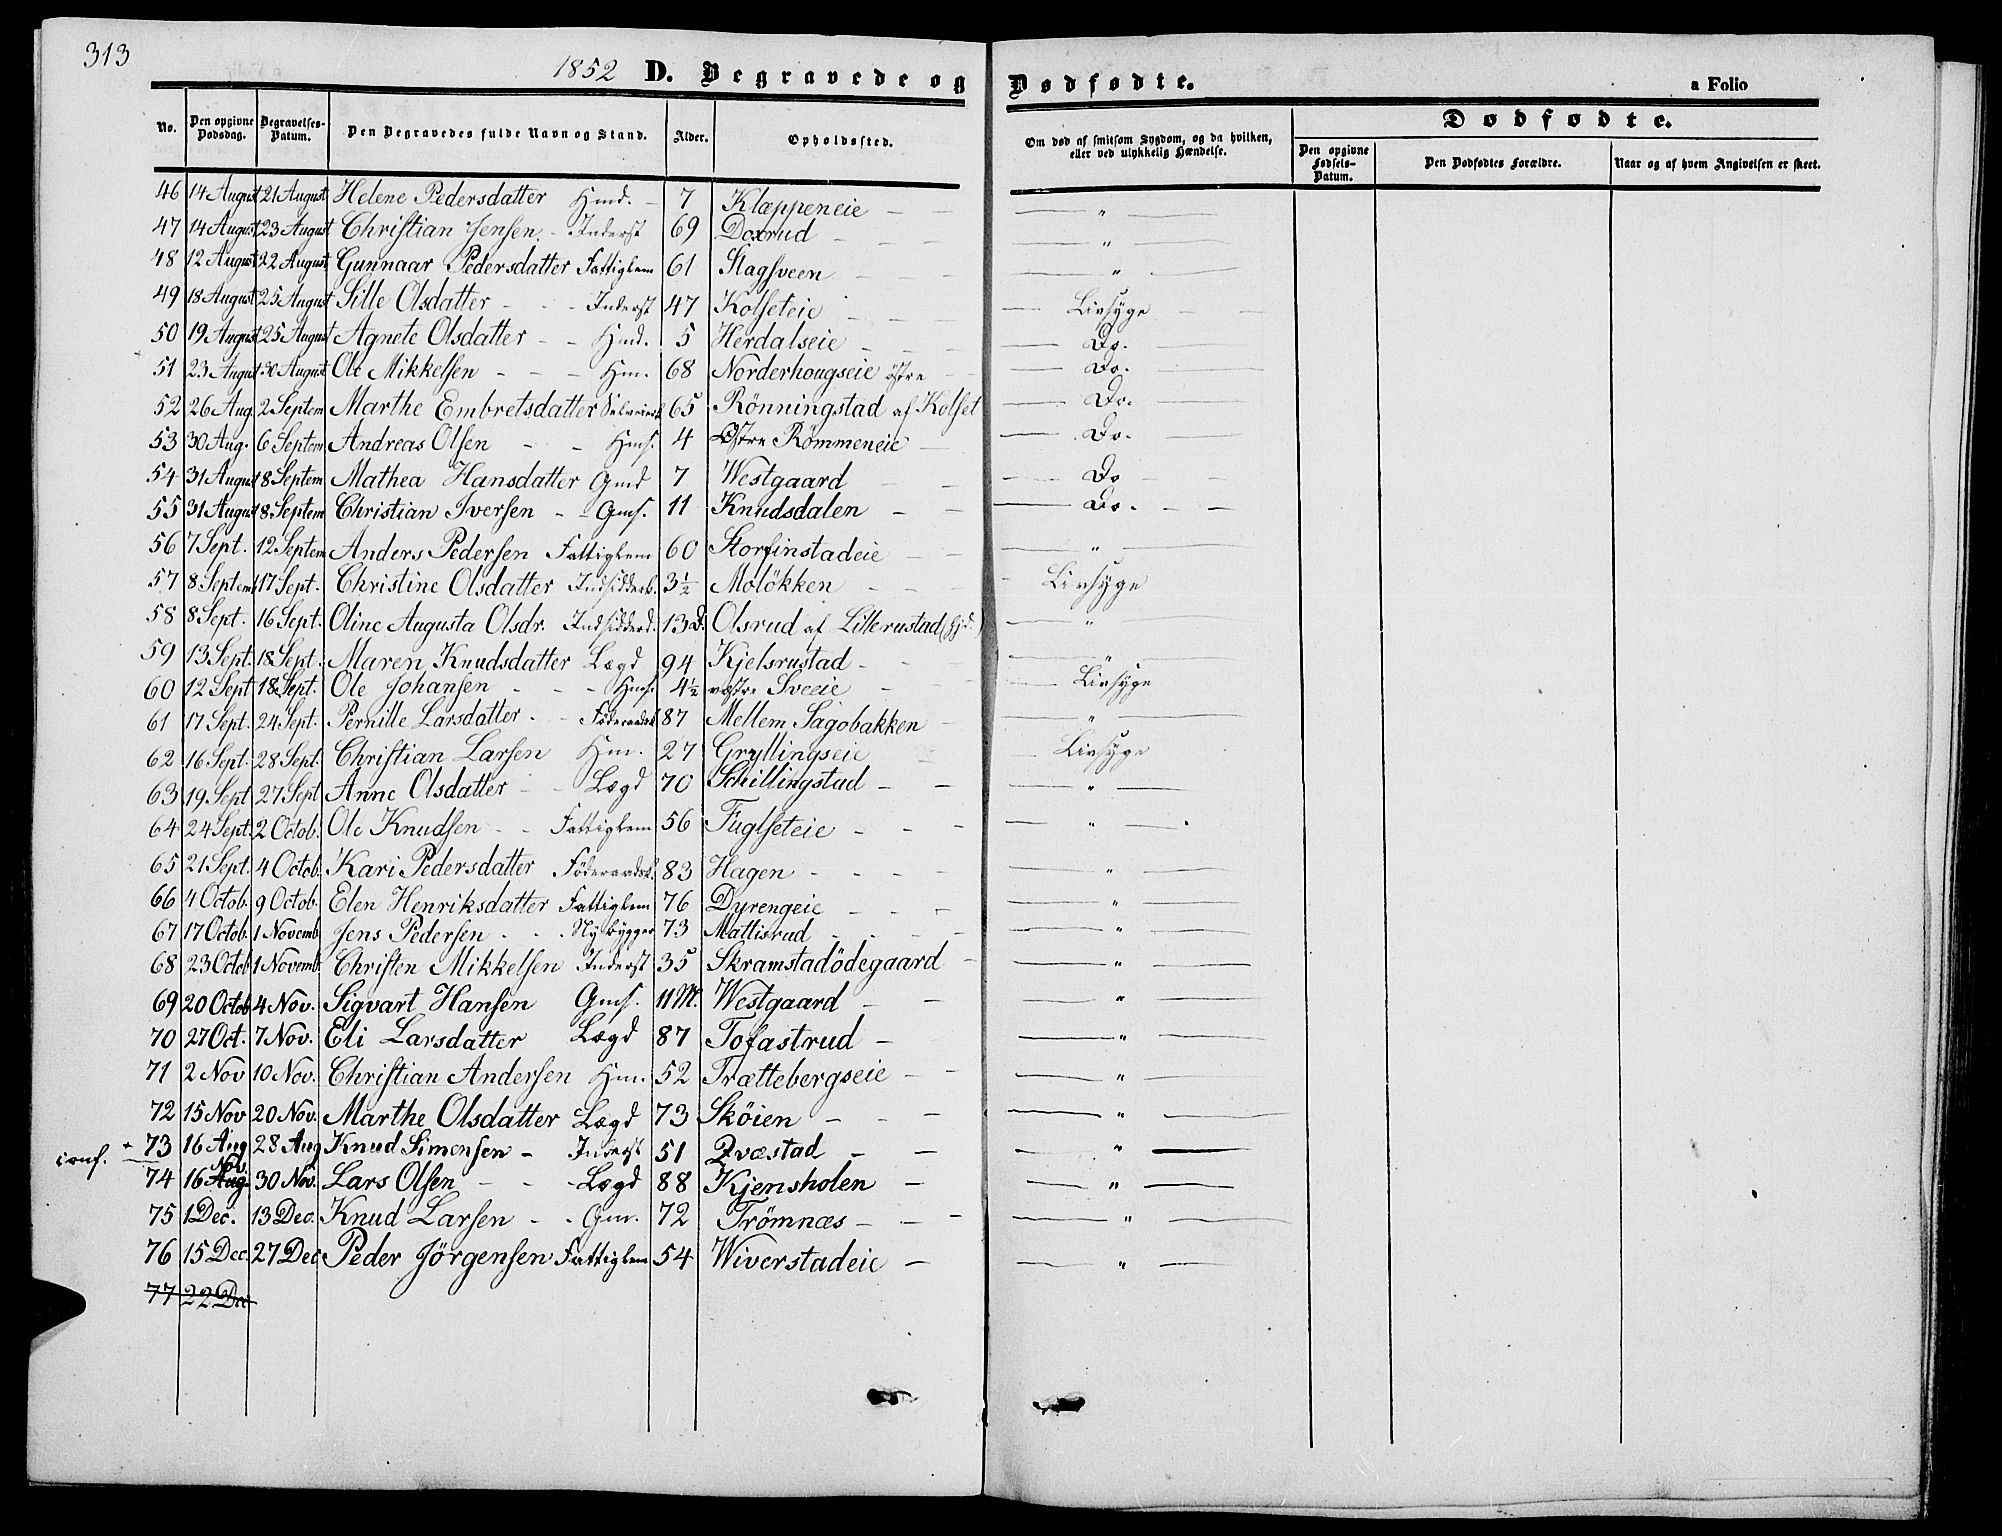 313
1852 D. Begravede og Dødfødte.
a Folio
No. Den opgivne Dødsdag. Begravelses-Datum. Den Begravedes fulde Navn og Stand. Alder. Opholdssted. Om død af smitsom Sygdom, og da hvilken, eller ved ulykkelig Hændelse.
Dødfødte.
Den opgivne Fødsels-Datum. Den Dødfødtes Forældre. Naar og af hvem Angivelsen er skeet.
46 14 August 21 August Helene Pedersdatter Hmd. - 7 Klæppeneie - - — " —
47 14 August 23 August Christian Jensen. - Inderst 69 Doxrud - - - — " —
48 12 August 22 August Gunnaar Pedersdatter Fattiglem 61 Slagsveen - - - — " —
49 18 August 25 August Sille Olsdatter - - - Inderst 47 Kolseteie - - - — Livsyge - -
50 19 August 25 August Agnete Olsdatter - - Hmd. 5 Herdalseie - - - — Do. —
51 23 August 30 August Ole Mikkelsen - - - Hm. 68 Norderhougseie østre - — Do. —
52 26 Aug. 2 Septem Marthe Embretsdatter Selveiersk 65 Rönningstad af Kolset — Do. —
53 30 Aug. 6 Septem Andreas Olsen - - Hms. 4 Østre Römmeneie - — Do. —
54 31 August 8 Septem Mathea Hansdatter Gmd 7 Westgaard - - — Do - -
55 31 August 8 Septem Christian Iversen - - Gms. 11 Knudsdalen - - — Do. - -
56 7 Sept. 12 Septem Anders Pedersen Fattiglem 60 Storfinstadeie - - — " —
57 8 Septem 17 Sept. Christine Olsdatter Indsidderb. 3½ Moløkken - - - - Livsyge
58 8 Sept. 16 Sept. Oline Augusta Olsdr. Indsidderd. 13 D. Olsrud af Lillerustad (hjd.) — " —
59 13 Sept. 18 Sept. Maren Knudsdatter Lægd 94 Kjelsrustad - - - — " —
60 12 Sept 18 Sept. Ole Johansen - - - Hms. 4½ vestre Sveeie - - — Livsyge
61 17 Sept. 24 Sept. Pernille Larsdatter. - Föderaadsk 87 Mellem Sagobakken - — " —
62 16 Sept. 28 Sept. Christian Larsen Hm. 27 Gryllingseie — Livsyge
63 19 Sept 27 Sept Anne Olsdatter - - Lægd 70 Schillingstad - - — " —
64 24 Sept. 2 Octob. Ole Knudsen - - Fattiglem 56 Fuglseteie - - - — " —
65 21 Sept. 4 Octob. Kari Pedersdatter Föderaadsk. 83 Hagen - - - - — " —
66 4 Octob. 9 Octob. Elen Henriksdatter Fattiglem 76 Dyrengeie - - - — " —
67 17 Octob. 1 Novemb Jens Pedersen - - . Nybygger 73 Mattisrud - - - - — " —
68 23 Octob 1 Novemb. Christen Mikkelsen Inderst 35 Skramstadödegaard - — " —
69 20 Octob 4 Nov. Sigvart Hansen Gms. 11 M. Westgaard - - — " —
70 27 Oct. 7 Nov. Eli Larsdatter Lægd 87 Tofastrud - — " —
71 2 Nov 10 Nov. Christian Andersen Hm. 52 Trættebergseie - - — " —
72 15 Nov 20 Nov. Marthe Olsdatter Lægd 73 Sköien - - — " —
+ 73 16 Aug 28 Aug Knud Simensen - Inderst 51 Qvæstad - - — " —
conf.
74 16 Aug. Nov. 30 Nov. Lars Olsen - - - Lægd 88 Kjensholen - — " —
75 1 Dec. 13 Dec. Knud Larsen - - Gm. 72 Trömnæs - - - — " —
76 15 Dec. 27 Dec Peder Jörgensen Fattiglem 54 Wiverstadeie - — " —
77 22 Dec